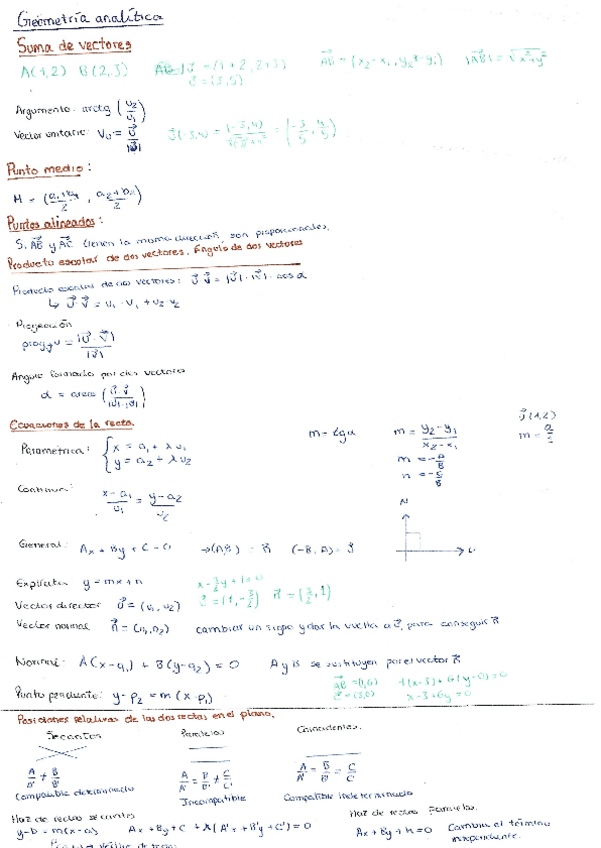 Geometría analítica
Suma de vectores
A(1,2) B(2,3) = (1+2, 2+3) AB = (x₂-x₁, y₂-y₁) |AB| = √x²+y²
= (3,5)
Argumento: arctg (u₂/u₁)
Vector unitario: Vu = U/|U| U(-3,4) = (-3/5, 4/5)
Punto medio:
M =
Puntos alineados:
Si AB y AC tienen la misma dirección son proporcionales.
Producto escalar de dos vectores. Ángulo de dos vectores
Producto escalar de dos vectores: U·V = |U|·|V|·cos α
↳ U·V = u₁·v₁ + u₂·v₂
Proyección
proy u = |U·V|/|U|
Ángulo formado por dos vectores
α =
Ecuaciones de la recta.
m = tg α m = y₂-y₁/x₂-x₁
Parametrica: { x = a₁ + λ u₁
y = a₂ + λ u₂
Continua: x-a₁/u₁ = y-a₂/u₂
General: Ax + By + C = 0 (-B, A)
Explícita y = mx+n
Vector director U = (u₁, u₂)
Vector normal cambiar un signo y dar la vuelta a U, para conseguir n
Normal: A(x-a₁) + B(y-a₂) = 0 A y B se sustituyen por el vector n
x-3+6y=0
Punto pendiente: y-p₂ = m(x-p₁)
Posiciones relativas de las dos rectas en el plano.
Secantes Paralelas Coincidentes
A/A' ≠ B/B' A/A' = B/B' ≠ C/C' A/A' = B/B' = C/C'
Compatible determinado Incompatible Compatible indeterminado
Haz de rectas secantes Haz de rectas paralelas.
y-b = m(x-a) Ax + By + C + λ(A'x + B'y + C') = 0 Ax + By + K = 0 Cambia el término
independiente.